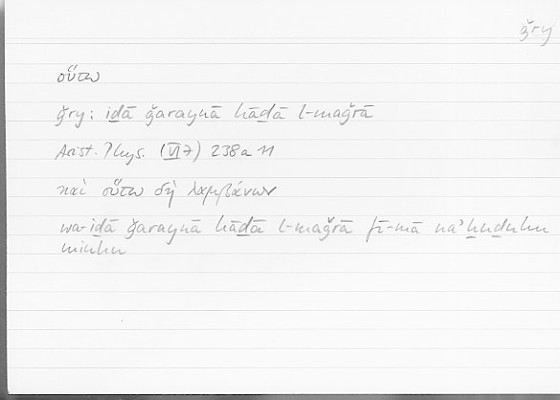 ǧry
οὕτω
ǧry: iḏā ǧaraynā hāḏā l-maǧrā
Arist. Phys. (VI 7) 238a11
καὶ οὕτω δὴ λαμβάνων
wa-iḏā ǧaraynā hāḏā l-maǧrā fī-mā naʾḫuḏuhu
minhu